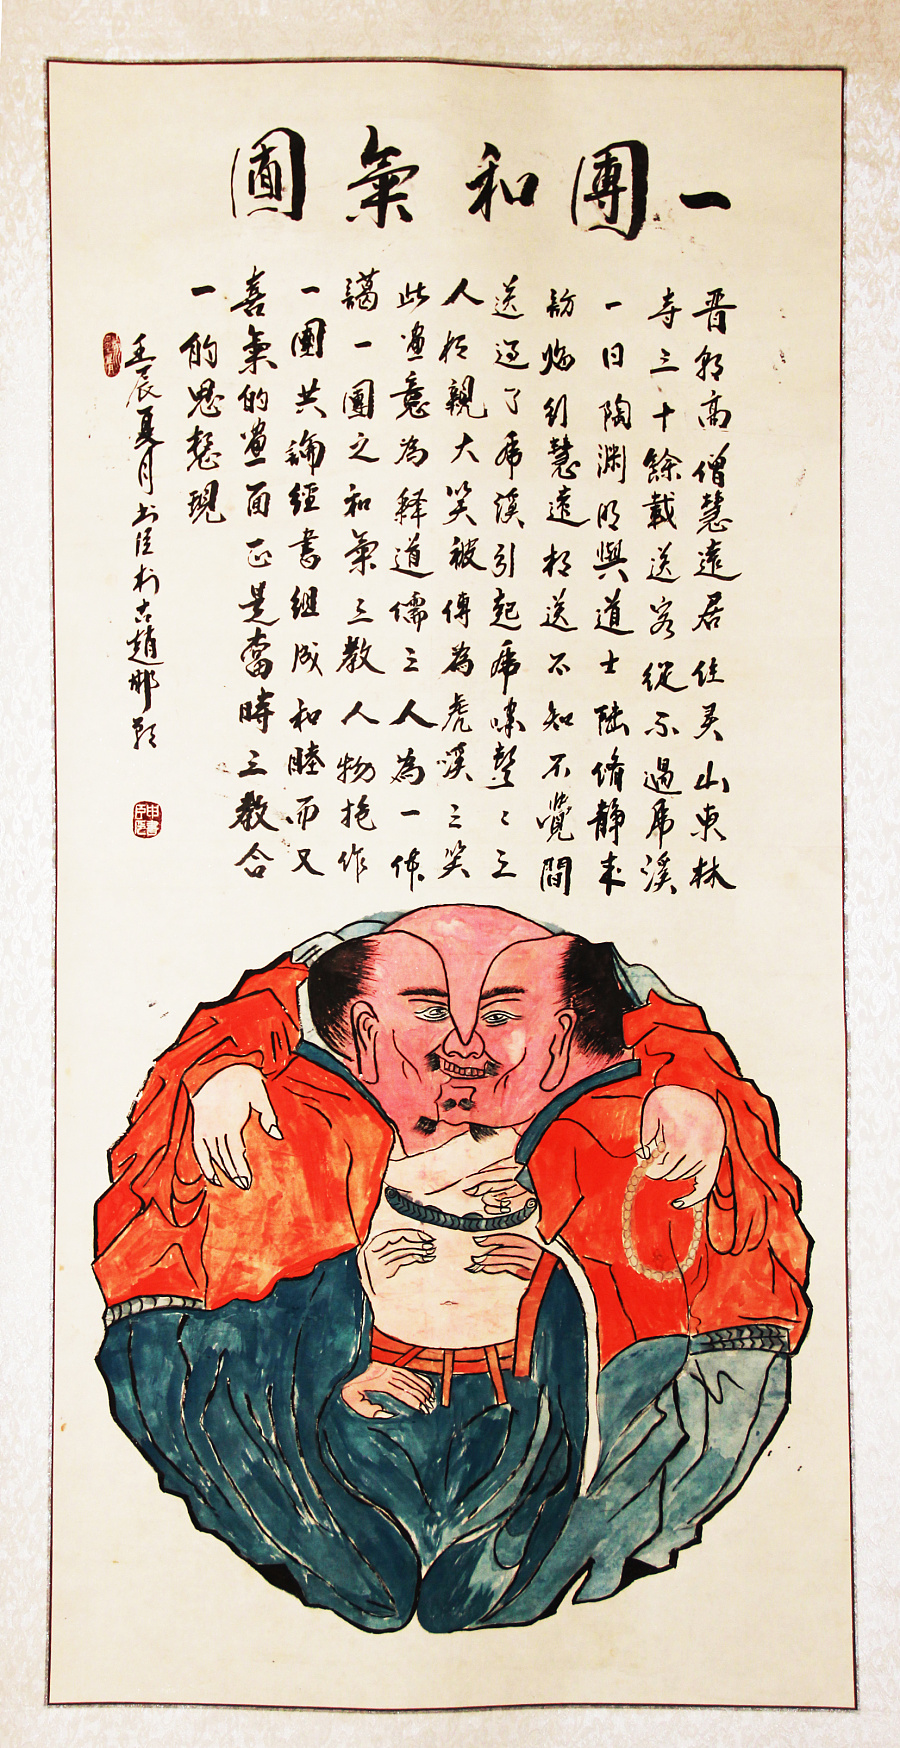 一團和氣圖
晋朝高僧慧遠居住灵山東林
寺三十餘載送客從不過虎溪
一日陶渊明與道士陆脩静来
訪临别慧遠相送不知不覺間
送过了虎溪引起虎嘯聲三
人相親大笑被傳為虎溪三笑
此畫意為释道儒三人為一体
謁一團之和氣三教人物抱作
一團共論經書組成和睦而又
喜氣的畫面正是當時三教合
一的思想現
壬辰夏月书臣於古趙邯